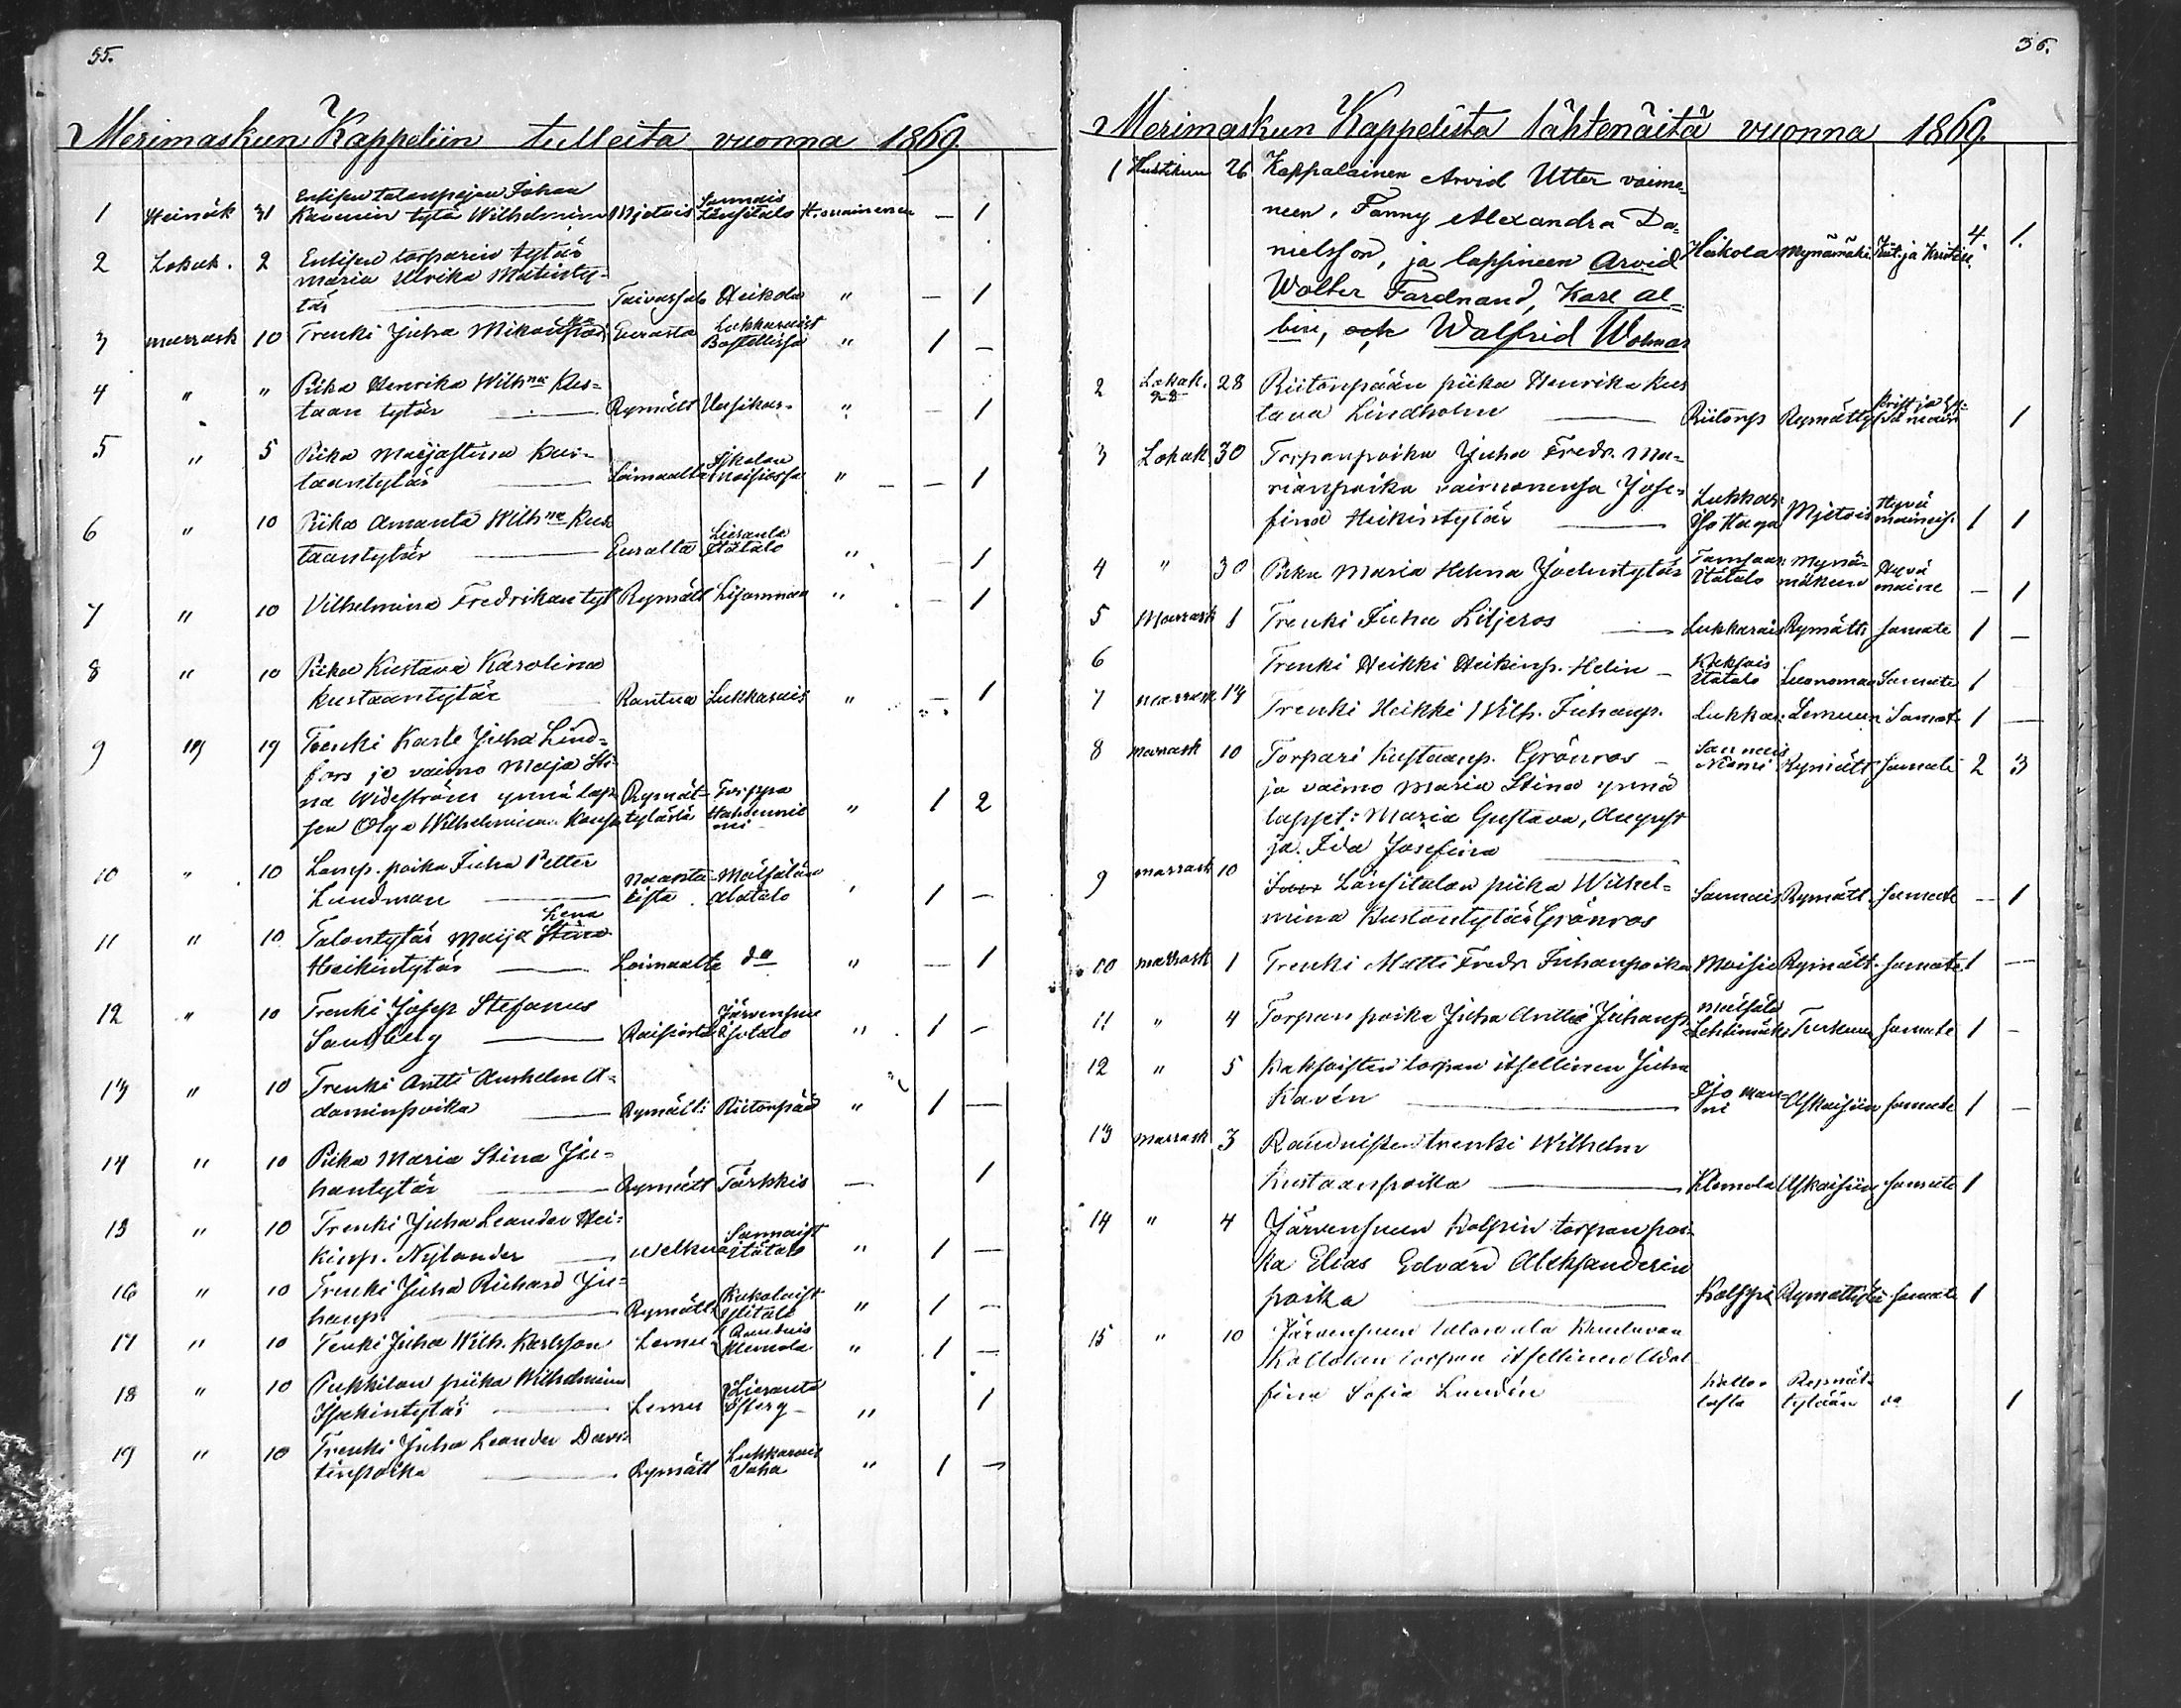 55.
Merimaskun Kappeliin tulleita vuonna 1869.
Entisen talonpojan Juhan
1 Heinäk 31 tytär Wilhelmina Mjetois Sannais Länsitalo H. mainenen — 1
2 Lokak. 2 Entisen torparin tytär
Maria Ulrika Matinty-
tär Taivassalo Heikola " — 1
3 marrask 10 Trenki Juha Eurasta Lukkaraist " 1 —
4 " " Piika Henrika Wilhna Kus=
taan tytär Rymätt Uusikar. " — 1
5 " 5 Piika Maijastina Kus-
taantytär Loimaalta " — — 1
6 " 10 Piika Amanta Wilhna Kus
taantytär Euralta Lieranta Itätalo " — 1
7 " 10 Vilhelmina Fredrikantyt Rymätt " — 1
8 " 10 Piika Kustava Karolina
Kustaantytär Rantua Lukkarais " — 1
9 " 19 Trenki Karle Juha Lind=
fors ja vaimo Maja Sti-
na Wideström ynnä lap-
sen Olga Wilhelminan kansa Rymät-tylästä Torppa " 1 2
10 " 10 Lamp. poika Juha Petter
Lundman Naanta-lista Alatalo " 1 —
11 " 10 Talontytär Maija Stina Lena
Heikintytär Loimaalta do " — 1
12 " 10 Trenki Josep Stefanus
Sandberg Raisiosta Järvensuu Isotalo " 1 —
13 " 10 Trenki Antti Anshelm A=
daminpoika Rymätt: Riitonpää " 1 —
14 " 10 Piika Maria Stina Ju=
hantytär Rymätt Tärkkis — 1
15 " 10 Trenki Juha Leander Hei=
kinp. Nylander Welkua Sannaist Itätalo " 1 —
16 " 10 Trenki Juha Richard Ju=
hanp. Rymätt Kukolaist Ylitalo " 1 —
17 " 10 Tenki Juha Wilh. Karlsson Lemu Randuis Klemola " 1 —
18 " 10 Pukkilan piika Wilhelmina
Isakintytär Lemu Lieranta Österg " 1
19 " 10 Trenki Juha Leander Davi=
tinpoika Rymätt Lukkarais Vaha " 1 —
36.
Merimaskun Kappelista lähtenäitä vuonna 1869.
1 Huhtikuu 26 Kappalainen Arvid Utter vaimo-
neen, Fanny Alexandra Da=
nielsson, ja lapsineen Arvid Heikola Mynämäki Kät. ja Kristill. 4. 1.
Wolter Fardnand, Karl Al=
bin, och Walfrid Wolmar
2 Lokak. 28 Riitonpään piika Henrika Kus
tava Lindholm Riitonp Rymätty 1
3 Lokak 30 Torpanpoika Juha Fredr. Ma=
rianpoika vaimonensa Jose=
fina Heikintytär Lukkar: Mjetois Hyvä maineis. 1 1
4 " 30 Piika Maria Helena Joelintytär Itätalo Mynä-mäkeen Hyvä maine — 1
5 Marrask 1 Trenki Juha Liljeros Lukkarais Rymätti samate 1 —
6 Trenki Heikki Heikinp. Helin — Itätalo samate 1
7 marrask 14 Trenki Heikki Wilh. Juhanp. Lukkar. Lemuun Samat 1 —
8 marrask 10 Torpari Kustaanp. Grönros — Sannais Niemi Rymätt samate 2 3
ja vaimo Maria Stina ynnä
lapset: Maria Gustava, August
ja Ida Josefina
9 marrask 10 Länsitalon piika Wilhel=
mina Kustantytär Grönros Sannais Rymätt. samate — 1
10 marrask 1 Trenki Matti Fredr Juhanpoika Moisio Rymätt. samate 1 —
11 " 4 Torpan poika Juha Antti Juhanp Lehtimäki Turkuun samate 1 —
12 " 5 Kaksoisten torpan itsellinen Juha
Kavén Askaisiin samate 1 —
13 marrask 3 Randuisten trenki Wilhelm
Kustaanpoika Klemola Askaisiin samate 1
14 " 4 Järvensuun Kolpin torpan poi-
ka Elias Edvard Aleksanderin
poika Kolppi Rymättylä samate 1
15 " 10 Järvensuun
Kallolan torpan itsellinen Adol
fina Sofia Lundén Rymät-tylään do 1